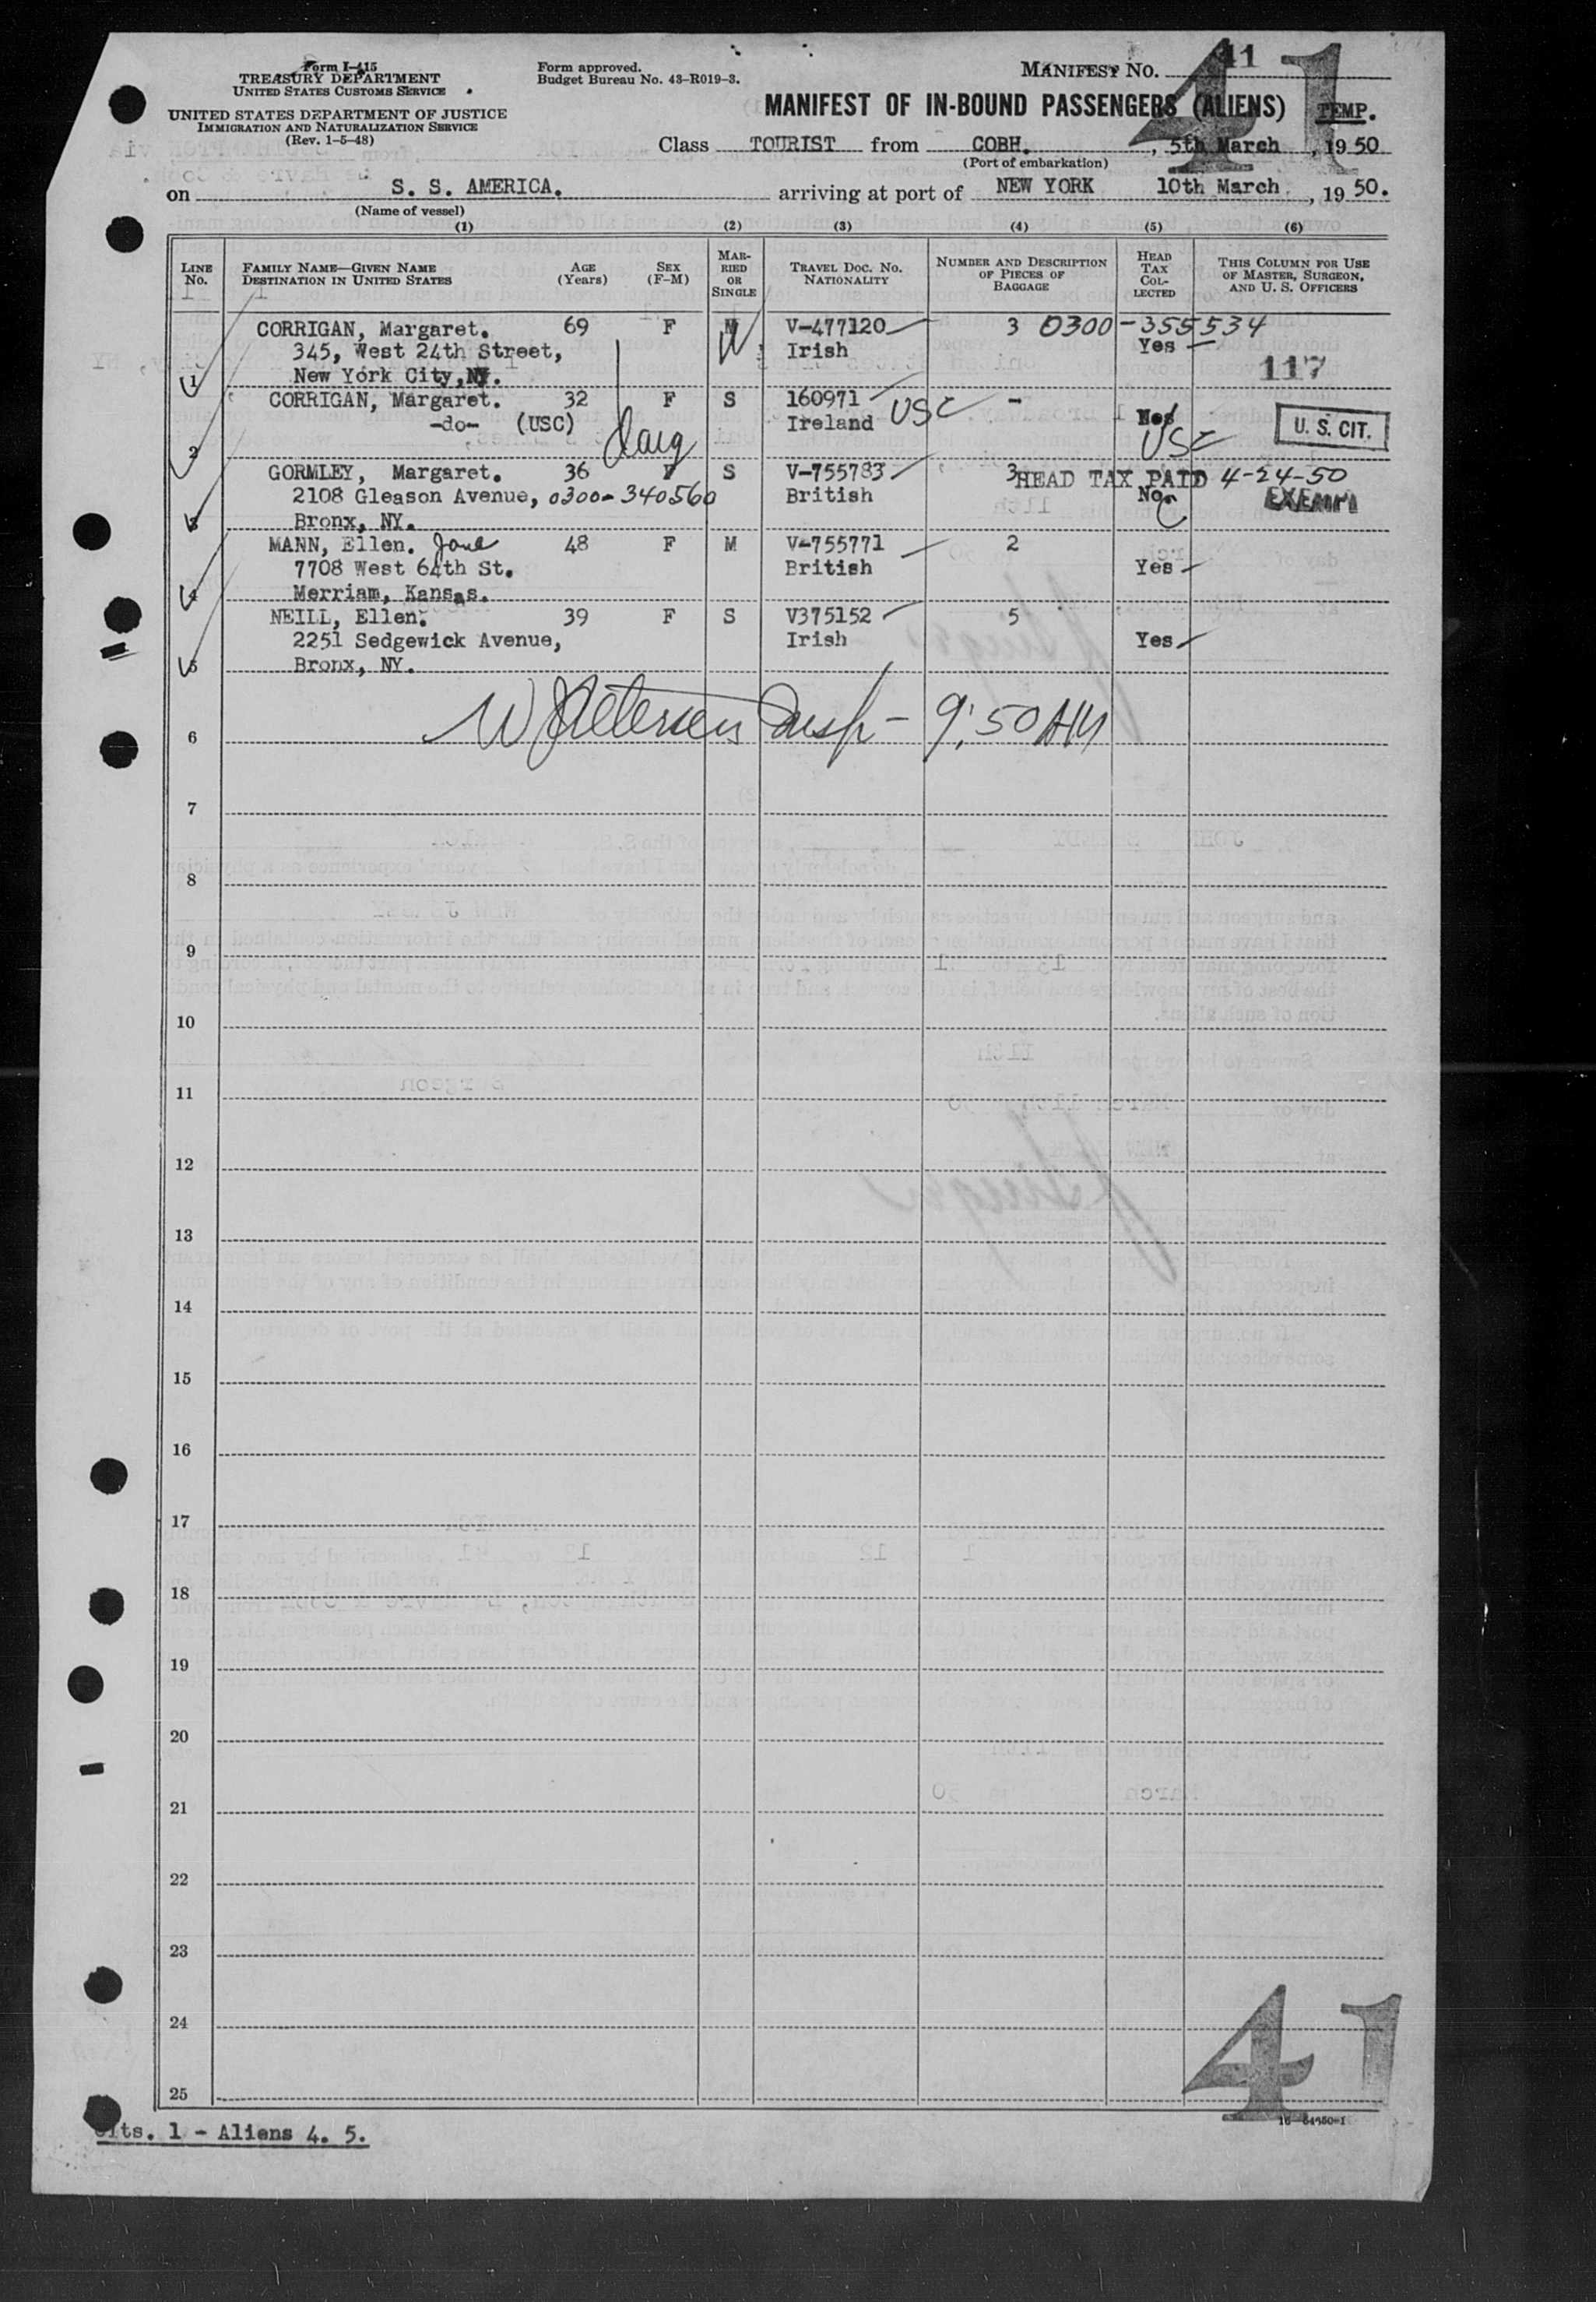 Form I-415
TREASURY DEPARTMENT
UNITED STATES CUSTOMS SERVICE
UNITED STATES DEPARTMENT OF JUSTICE
IMMIGRATION AND NATURALIZATION SERVICE
(Rev. 1-5-48)
Form approved.
Budget Bureau No. 43-R019-3.
MANIFEST No. 41
41
MANIFEST OF IN-BOUND PASSENGERS (ALIENS) TEMP.
Class TOURIST from COBH. , 5th March , 19 50
(Port of embarkation)
on S. S. AMERICA. arriving at port of NEW YORK 10th March , 19 50.
(Name of vessel)
(1) (2) (3) (4) (5) (6)
LINE No. FAMILY NAME—GIVEN NAME DESTINATION IN UNITED STATES AGE (Years) SEX (F-M) MARRIED OR SINGLE TRAVEL DOC. NO. NATIONALITY NUMBER AND DESCRIPTION OF PIECES OF BAGGAGE HEAD TAX COLLECTED THIS COLUMN FOR USE OF MASTER, SURGEON, AND U. S. OFFICERS
CORRIGAN, Margaret. 69 F M W V-477120 3 0300-355534
345, West 24th Street, Irish Yes
1 New York City, NY. 117
CORRIGAN, Margaret. 32 F S 160971 -
-do- (USC) Daug Ireland USC USC U. S. CIT.
2
GORMLEY, Margaret. 36 F S V-755783 3 HEAD TAX PAID 4-24-50
2108 Gleason Avenue, 0300-340560 British No. EXEMPT
3 Bronx, NY.
MANN, Ellen. Jane 48 F M V-755771 2
7708 West 64th St. British Yes
4 Merriam, Kansas.
NEILL, Ellen. 39 F S V375152 5
2251 Sedgewick Avenue, Irish Yes
5 Bronx, NY.
6 W Petersen Insp - 9:50 AM
7
8
9
10
11
12
13
14
15
16
17
18
19
20
21
22
23
24
25
41
Cits. 1 - Aliens 4. 5.